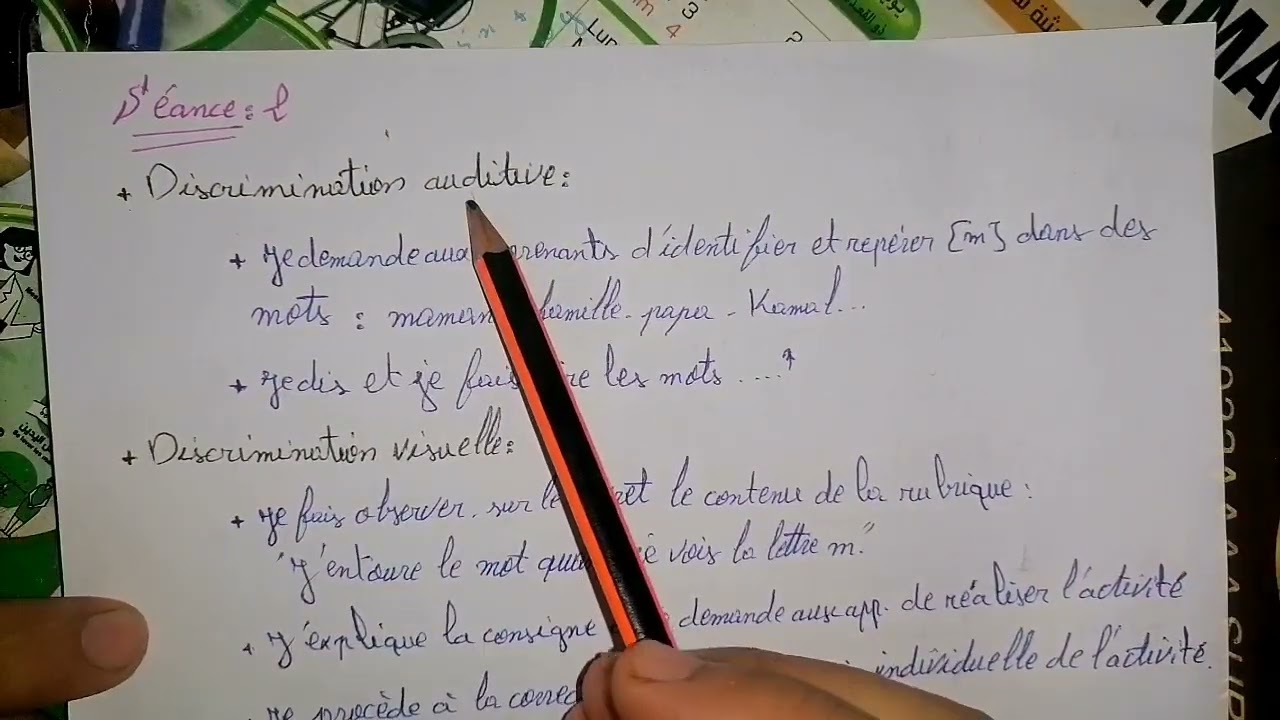 Séance: 2
+ Discrimination auditive:
+ Je demande aux d'identifier et repérer [m] dans des
mots : maman famille - papa - Kamal...
+ Je dis et je les mots ....
+ Discrimination visuelle:
+ Je fais observer, sur le le contenu de la rubrique :
"J'entoure le mot je vois la lettre m."
+ J'explique la consigne demande aux app. de réaliser l'activité
Je procède à la individuelle de l'activité.
Lun
3
4